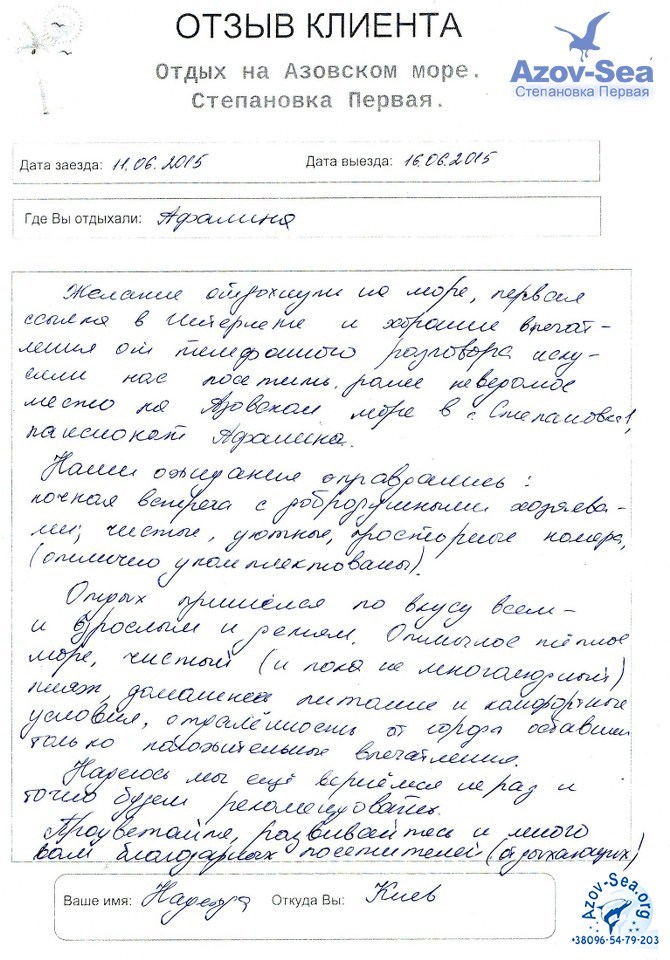 ОТЗЫВ КЛИЕНТА
Отдых на Азовском море.
Степановка Первая.
Azov-Sea
Степановка Первая
Дата заезда: 11.06.2015 Дата выезда: 16.06.2015
Где Вы отдыхали: Афалина
Желание отдохнуть на море, первая
ссылка в Интернете и хорошие впечат-
ления от телефонного разговора
нас посетить ранее неведомое
место на Азовском море в с. Степановка 1,
пансионат Афалина.
Наши ожидания оправдались:
ночная встреча с добродушными хозяева-
ми; чистые, уютные, просторные номера,
(отлично укомплектованы).
Отдых пришёлся по вкусу всем –
и взрослым и детям. Отличное тёплое
море, чистый (и пока не многолюдный)
пляж, домашнее питание и комфортные
условия, отдалённость от города оставили
только положительные впечатления.
Надеюсь мы ещё вернёмся не раз и
точно будем рекомендовать.
Процветайте, развивайтесь и много
вам благодарных посетителей (отдыхающих)
Ваше имя: Надежда Откуда Вы: Киев
Azov-Sea.org
+38096-54-79-203